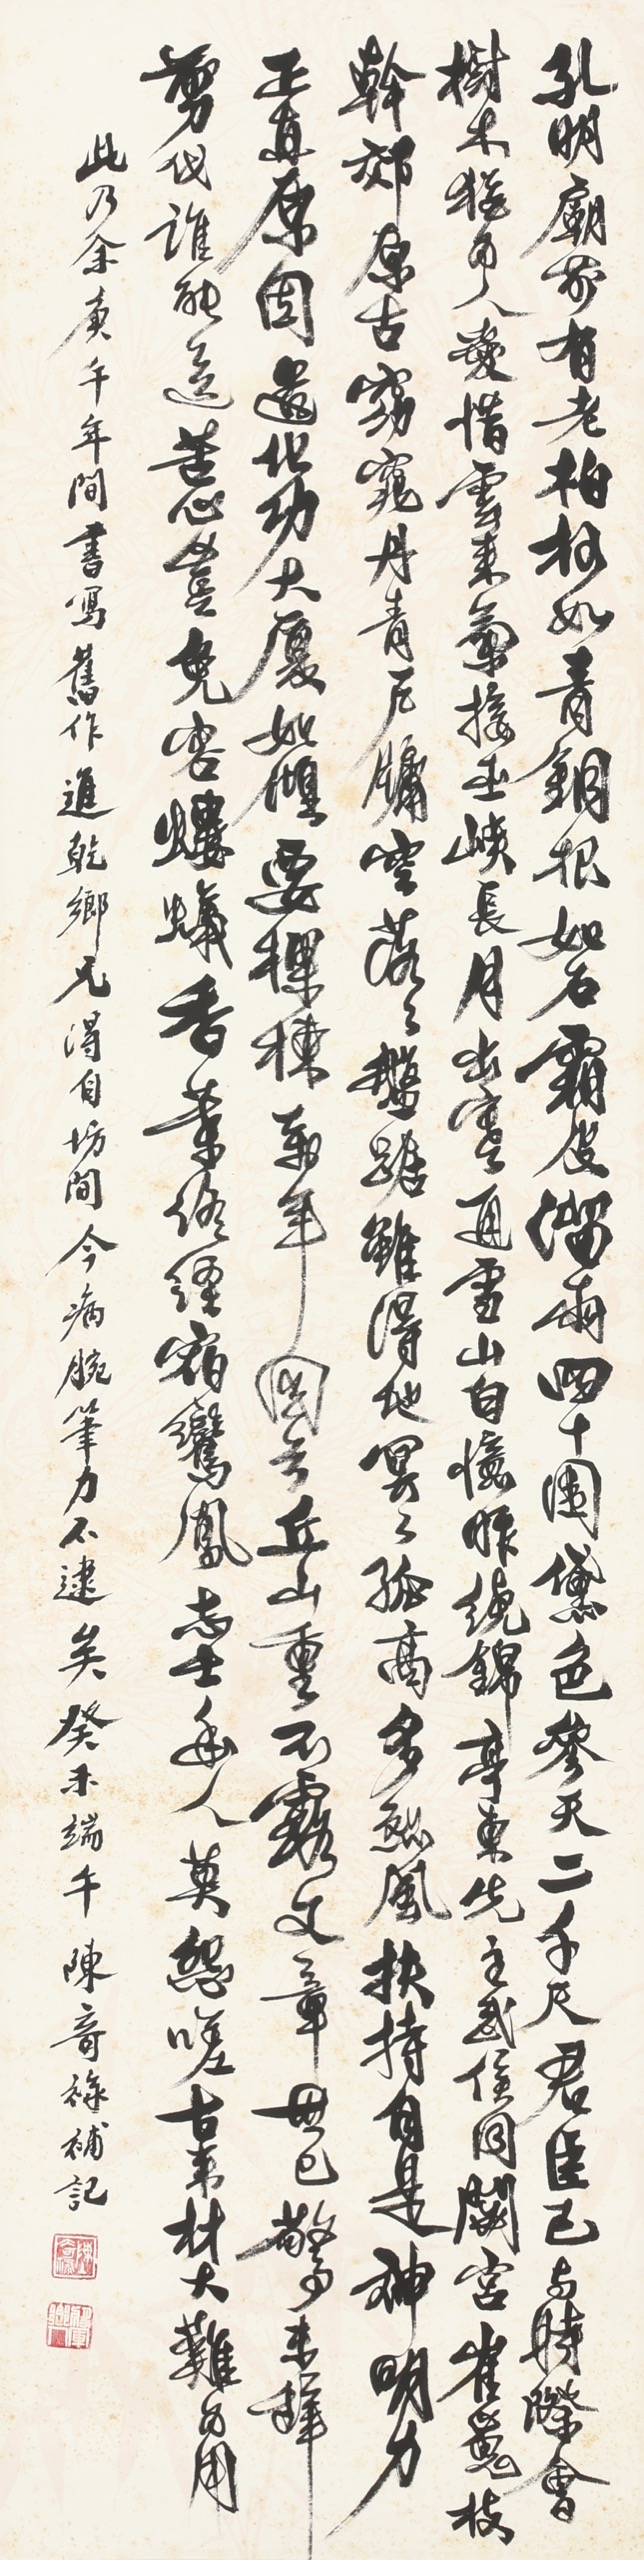 孔明廟前有老柏柯如青銅根如石霜皮溜雨四十圍黛色參天二千尺君臣已與時際會
樹木猶為人愛惜雲來氣接巫峽長月出寒通雪山白憶昨繞錦亭東先主武侯同閟宮崔嵬枝
幹郊原古窈窕丹青戶牖空落〻盤踞雖得地冥〻孤高多烈風扶持自是神明力
正直原因造化功大廈如傾要樑棟萬年回首丘山重不露文章世已驚未辭
剪伐誰能送苦心豈免容螻蟻香葉終經宿鸞鳳志士幽人莫怨嗟古來材大難為用
此乃余庚午年間書寫舊作進乾鄉兄得自坊間今病腕筆力不逮矣癸未端午陳奇祿補記